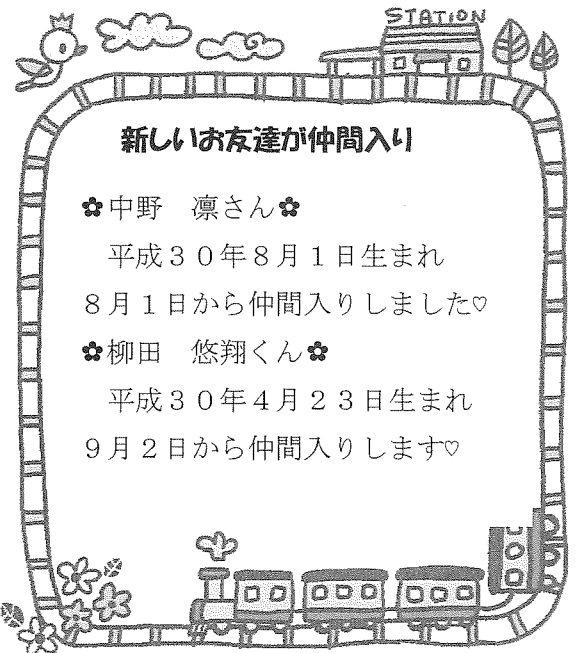 STATION
新しいお友達が仲間入り
✿中野　凛さん✿
平成３０年８月１日生まれ
８月１日から仲間入りしました♡
✿柳田　悠翔くん✿
平成３０年４月２３日生まれ
９月２日から仲間入りします♡